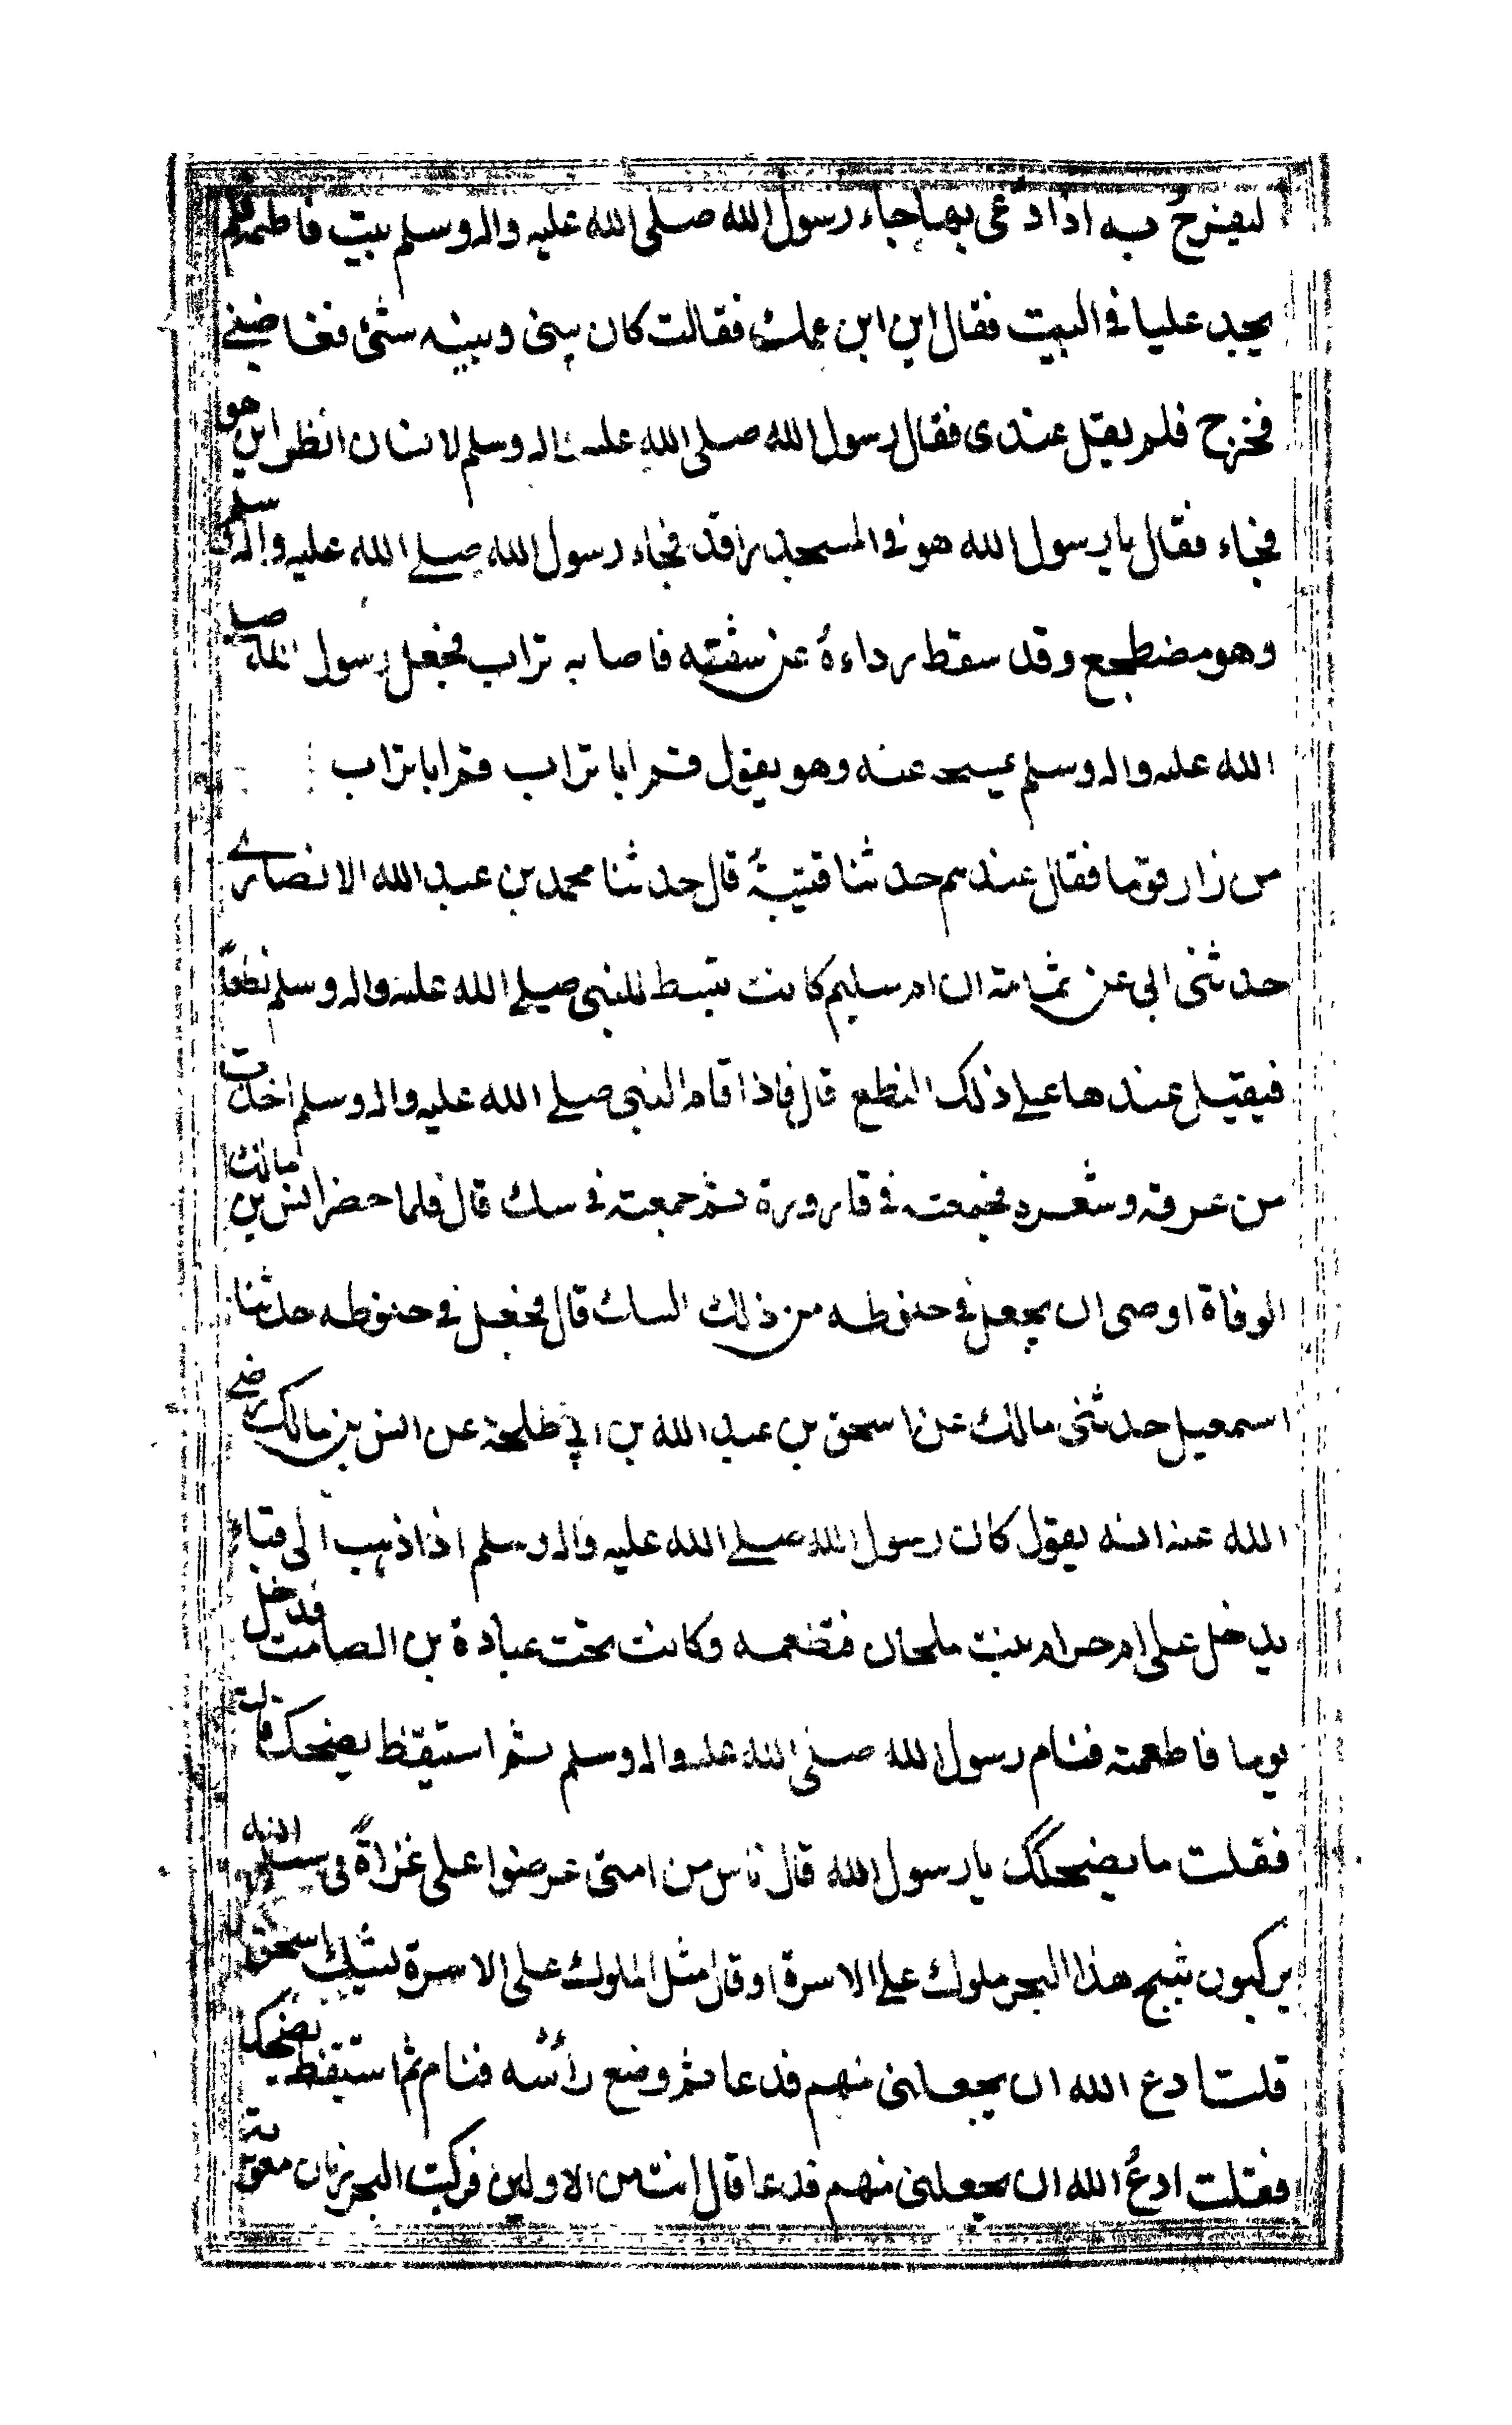 ليفرح به اذا دعى بها جاء رسول الله صلى الله عليه واله وسلم بيت فاطمة فلم
يجد عليا في البيت فقال اين ابن عمك فقالت كان بيني وبينه شئ فغاضبني
فخرج فلم يقل عندى فقال رسول الله صلى الله عليه واله وسلم لانسان انظر اين هو
فجاء فقال يا رسول الله هو في المسجد راقد فجاء رسول الله صلى الله عليه واله وسلم
وهو مضطجع وقد سقط رداءهُ عن شقته فاصابه تراب فجعل رسول الله صلى
الله عليه واله وسلم يمسحه عنه وهو يقول قم ابا تراب قم ابا تراب
من زار قوما فقال عندهم حدثنا قتيبةُ قال حدثنا محمد بن عبد الله الانصارى
حدثنى ابي عن ثمامة ان ام سليم كانت تبسط للنبى صلى الله عليه واله وسلم نطعاً
فيقيل عندها على ذلك النطع قال فاذا قام النبى صلى الله عليه واله وسلم اخذت
من عرقه وشعره فجمعته في قارورة ثم جمعته في سك قال فلما حضر انس بن مالك
الوفاة اوصى ان يجعل في حنوطه من ذلك السك قال فجعل في حنوطه حدثنا
اسمعيل حدثنى مالك عن اسحق بن عبد الله بن ابي طلحة عن انس بن مالك رضى
الله عنه انه يقول كان رسول الله صلى الله عليه واله وسلم اذا ذهب الى قباء
يدخل على ام حرام بنت ملحان فتطعمه وكانت تحت عبادة بن الصامت فدخل
يوما فاطعمته فنام رسول الله صلى الله عليه واله وسلم ثم استيقظ يضحك قالت
فقلت ما يضحكك يا رسول الله قال ناس من امتى عرضوا على غزاةً فى سبيل الله
يركبون ثبج هذا البحر ملوك على الاسرة او قال مثل الملوك على الاسرة يشك اسحق
قلت ادع الله ان يجعلنى منهم فدعا ثم وضع رأسه فنام ثم استيقظ يضحك
فقلت ادعُ الله ان يجعلنى منهم فدعا قال انت من الاولين فركبت البحر زمان معوية